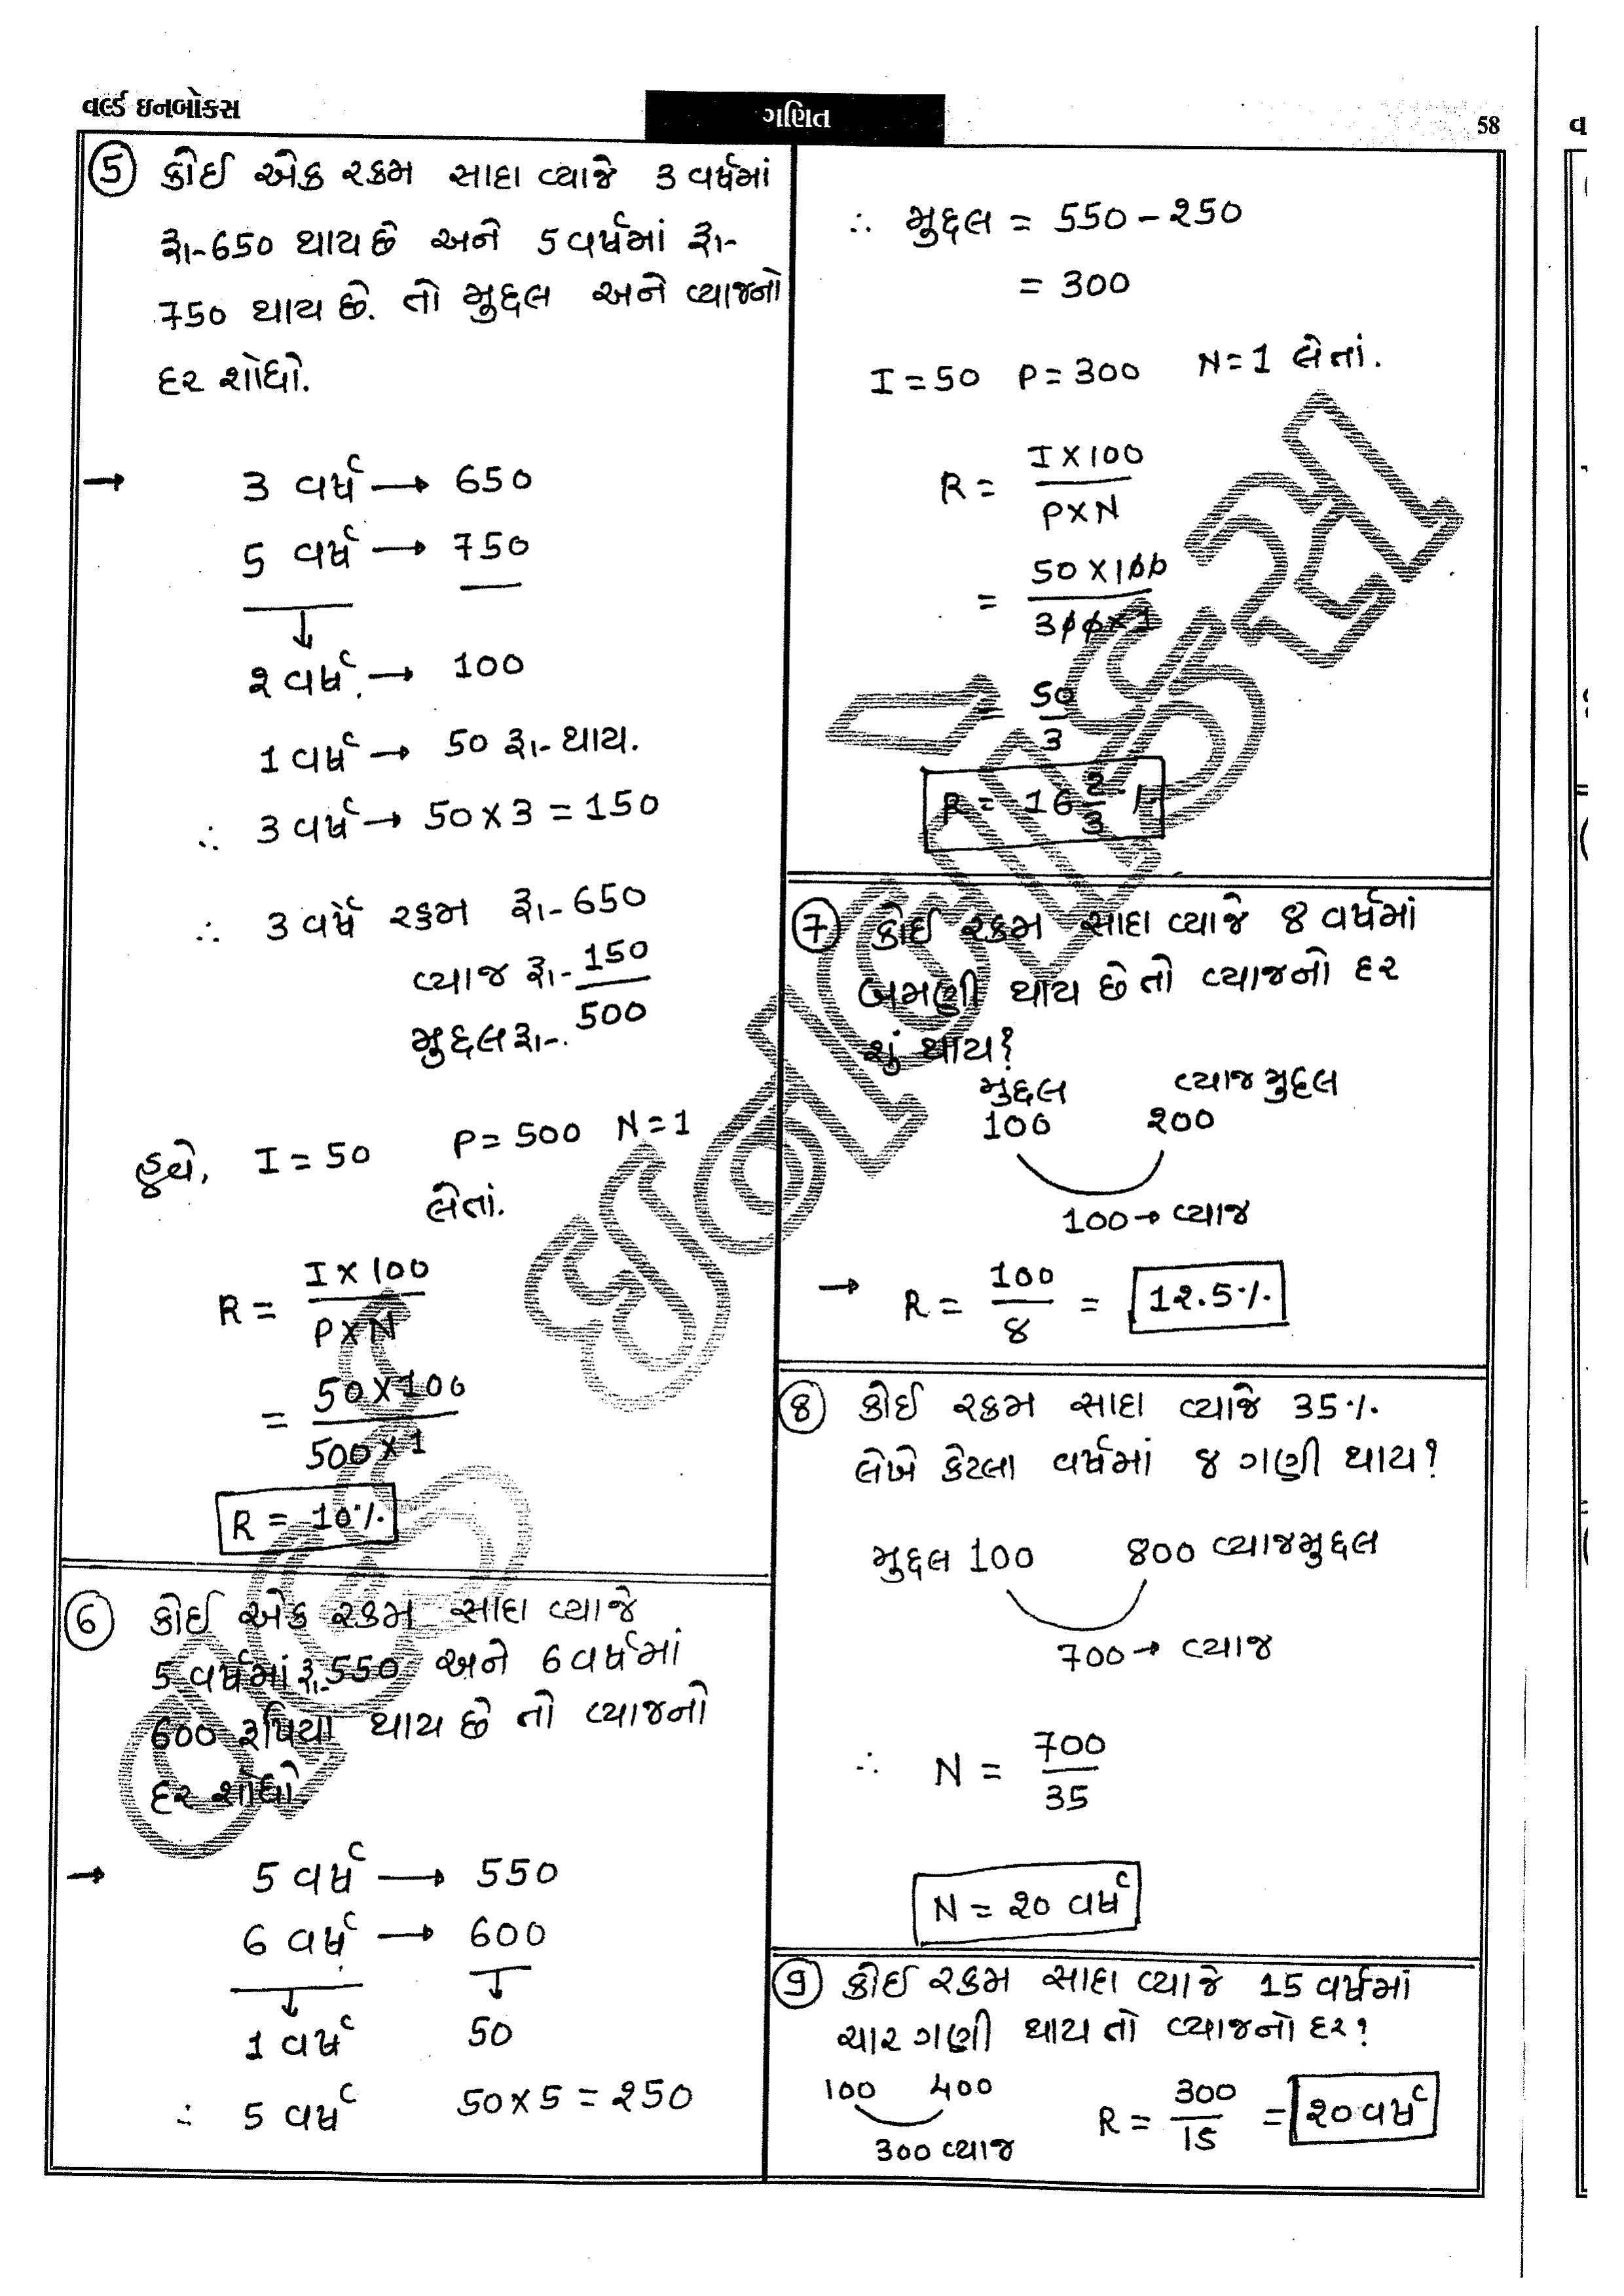 વર્લ્ડ ઇનબોક્સ
ગણિત
58
5 કોઈ એક રકમ સાદા વ્યાજે 3 વર્ષમાં
રૂા-650 થાય છે અને 5 વર્ષમાં રૂા-
750 થાય છે. તો મુદ્દલ અને વ્યાજનો
દર શોધો.
→ 3 વર્ષ → 650
5 વર્ષ → 750
↓
2 વર્ષ → 100
1 વર્ષ → 50 રૂા- થાય.
∴ 3 વર્ષ → 50 X 3 = 150
∴ 3 વર્ષે રકમ રૂા- 650
વ્યાજ રૂા- 150
મુદ્દલ રૂા-. 500
હવે, I = 50 P = 500 N = 1
લેતાં.
R = I X 100 / P X N
= 50 X 100 / 500 X 1
R = 10%
6 કોઈ એક રકમ સાદા વ્યાજે
5 વર્ષમાં રૂા-550 અને 6 વર્ષમાં
600 રૂપિયા થાય છે તો વ્યાજનો
દર શોધો.
→ 5 વર્ષ → 550
6 વર્ષ → 600
↓ ↓
1 વર્ષ 50
∴ 5 વર્ષ 50 X 5 = 250
∴ મુદ્દલ = 550 - 250
= 300
I = 50 P = 300 N = 1 લેતાં.
R = I X 100 / P X N
= 50 X 100 / 300 X 1
= 50 / 3
R = 16 2/3 %
7 કોઈ રકમ સાદા વ્યાજે 8 વર્ષમાં
બમણી થાય છે તો વ્યાજનો દર
શું થાય?
મુદ્દલ વ્યાજમુદ્દલ
100 200
100 → વ્યાજ
→ R = 100 / 8 = 12.5%
8 કોઈ રકમ સાદા વ્યાજે 35%
લેખે કેટલા વર્ષમાં 8 ગણી થાય?
મુદ્દલ 100 800 વ્યાજમુદ્દલ
700 → વ્યાજ
∴ N = 700 / 35
N = 20 વર્ષ
9 કોઈ રકમ સાદા વ્યાજે 15 વર્ષમાં
ચાર ગણી થાય તો વ્યાજનો દર?
100 400
300 વ્યાજ
R = 300 / 15 = 20 વર્ષ